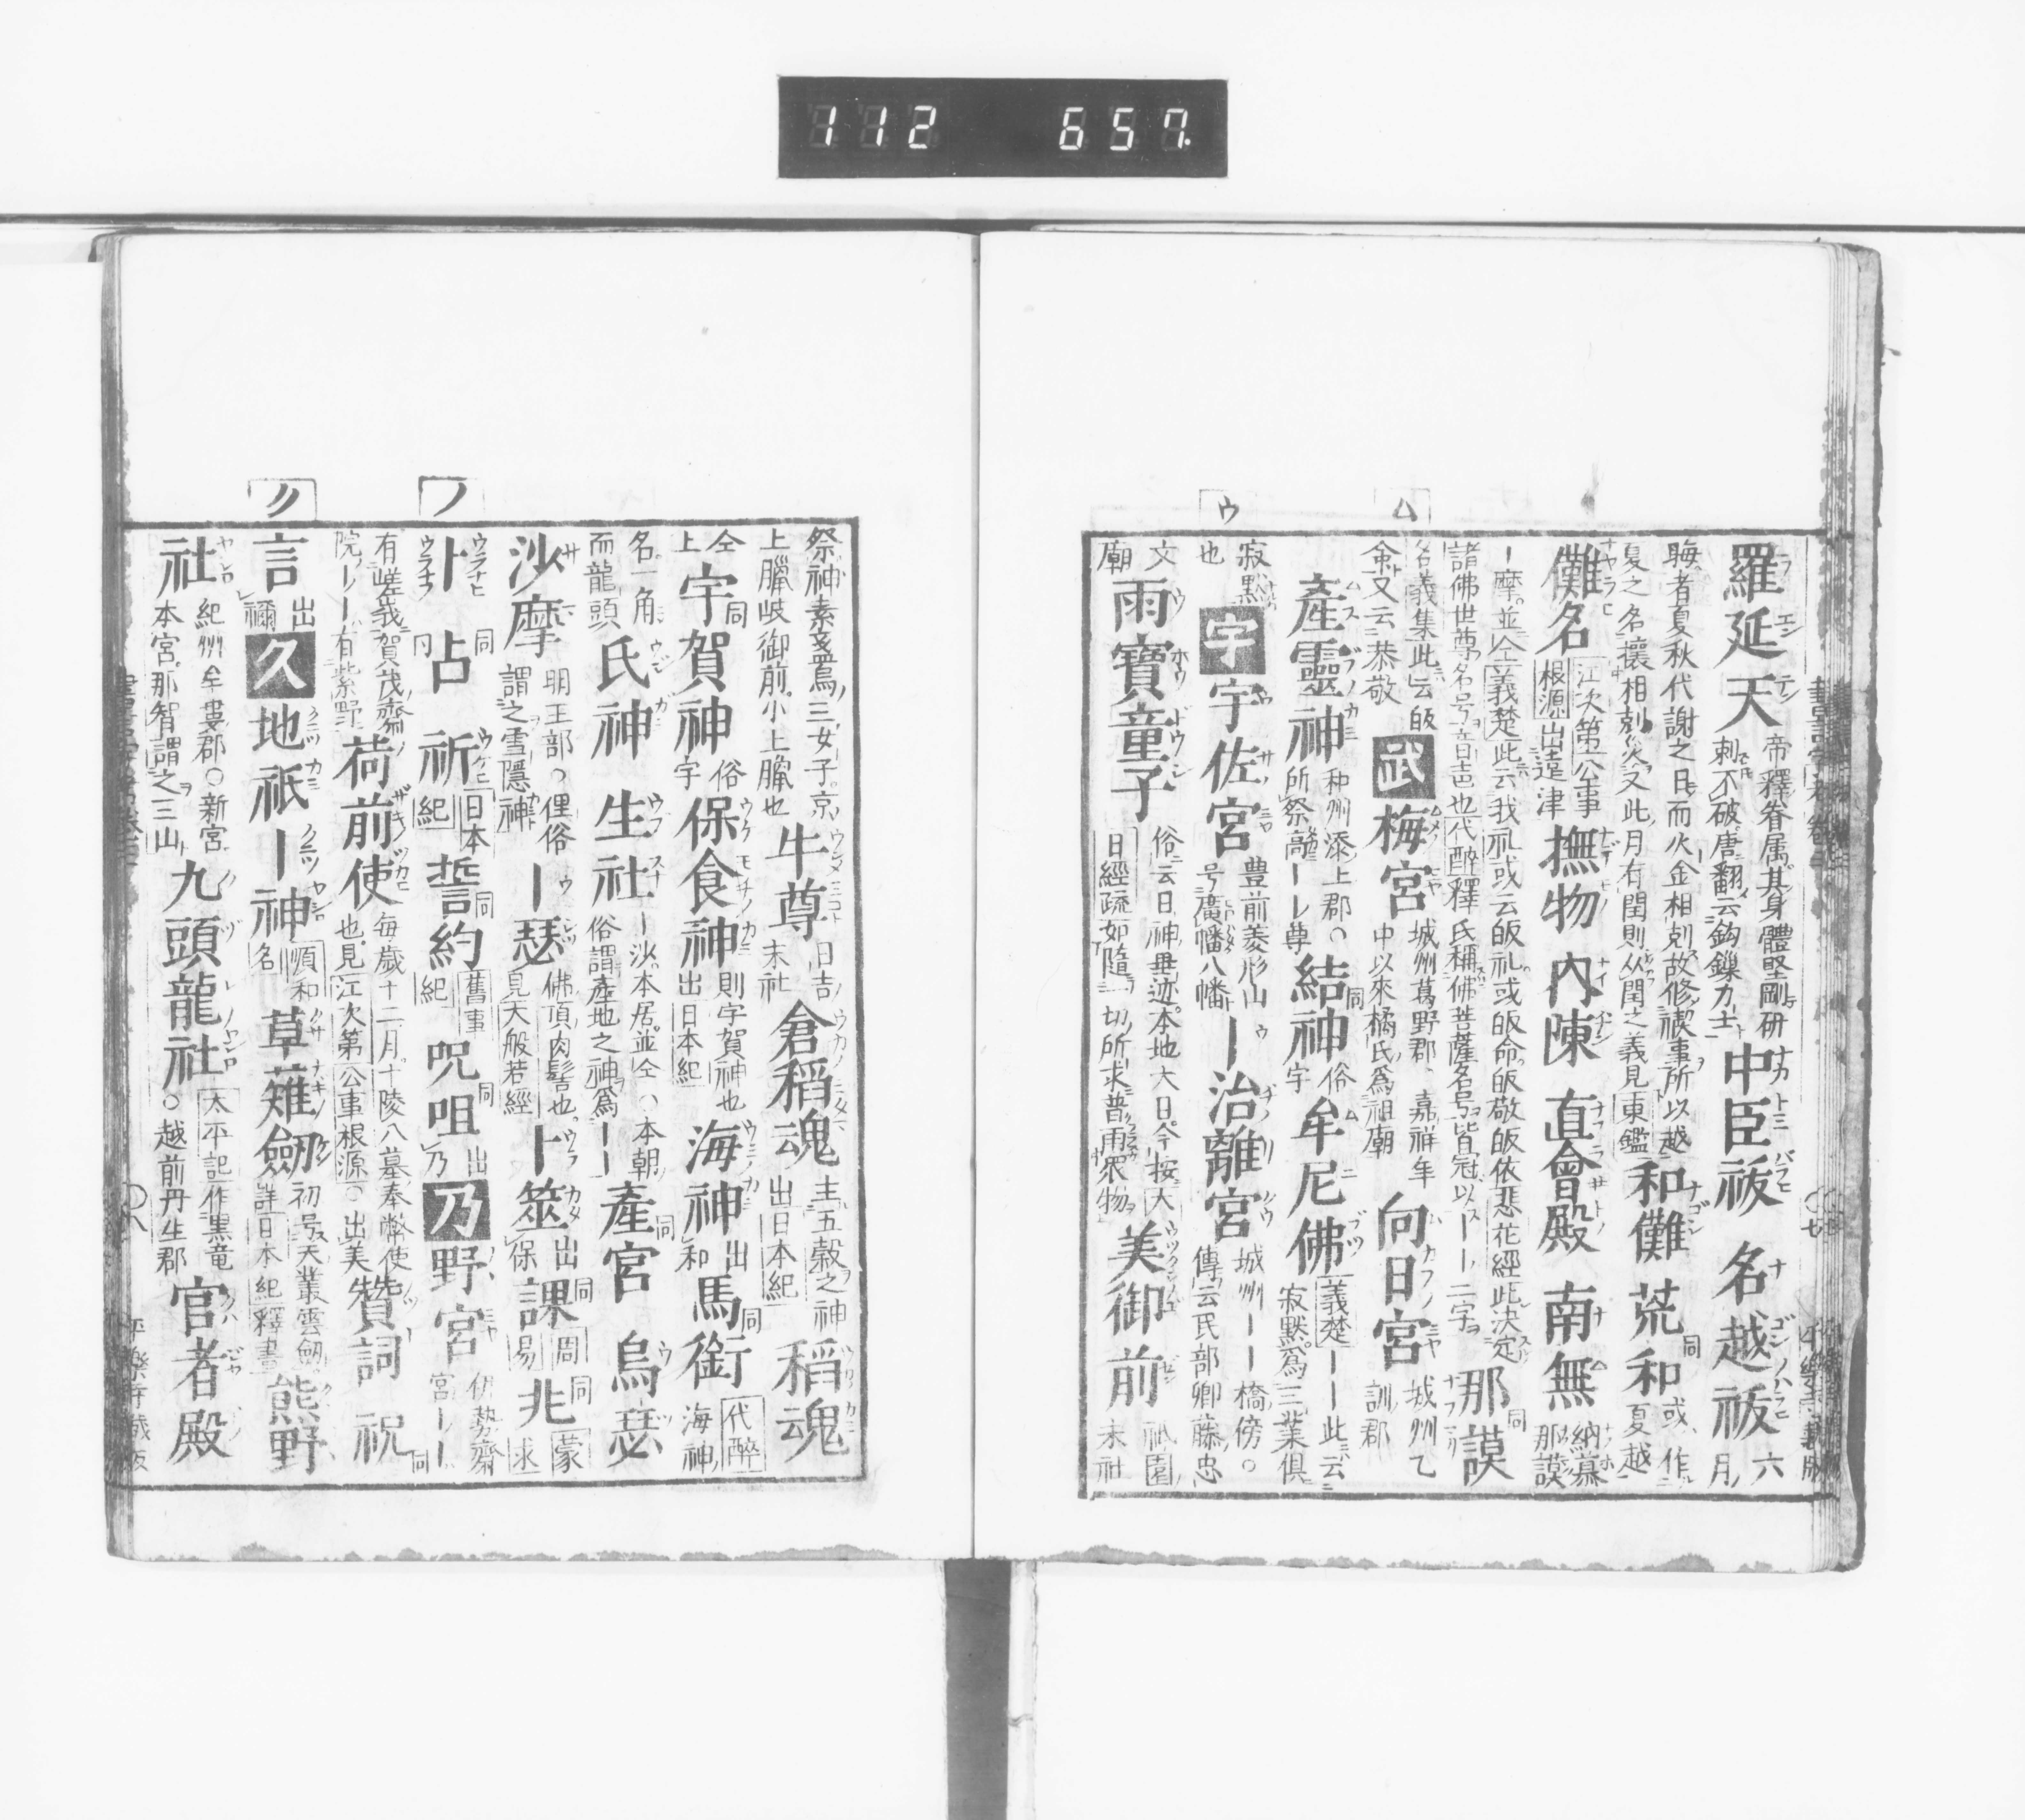 112 657
ム
ウ
羅延天 帝釋眷属其身體堅剛研刺不破唐翻云鈎鏁力士 中臣祓 名越祓 六月
晦者夏秋代謝之日而火金相剋故修禊事所以越夏之名攘相剋災又此月有閏則从閏之義見東鑑 和儺 荒和 同 或作夏越
儺名 江次第公事根源出遠津 撫物 内陳 直會殿 南無 納慕那謨
ー摩並仝義楚此云我礼或云皈礼或皈命皈敬皈依悲花經此決定諸佛世尊名号音吉也代醉釋氏稱佛菩薩名号皆冠以ーー二字 那謨 同
名義集此云皈命又云恭敬 武 梅宮 城州葛野郡嘉祥年中以來橘氏為祖廟 向日宮 城州乙訓郡
產靈神 和州添上郡○所祭高ーー尊 結神 同 俗字 牟尼佛 義楚ーー此云寂默為三業俱
寂默也 宇 宇佐宮 豊前菱形山号廣幡八幡 ー治離宮 城州ーー橋傍○傳云民部卿藤忠
文廟 雨寶童子 俗云日神垂迹本地大日今按大日經疏如隨一切所求普雨衆物 美御前 祇園末社
フ
ク
祭神素戔烏三女子京上臈岐御前小上臈也 牛尊 日吉末社 倉稻魂 主五穀之神出日本紀 稻魂
仝上 宇賀神 同 俗字 保食神 則宇賀神也出日本紀 海神 出和 馬銜 同 代醉海神
名一角而龍頭 氏神 生社 ー沙本居並仝○本朝俗謂產地之神為ーー 產宮 同 烏瑟
沙摩 明王部○俚俗謂之雪隱神 ー瑟 佛頂肉髻也見天般若經 ー筮 出保 課 同 周易 兆 同 蒙求
卜 占 同 祈 日本紀 誓約 同 舊事紀 呪咀 同 出乃 乃 野宮 伊勢齋宮ーー
有嵯峨賀茂齋院ーー有紫野 荷前使 每歲十二月十陵八墓奉幣使也見江次第公事根源○出美 賛詞 祝 同
言 出禰 久 地祇 ー神 順和名 草薙劒 初号天叢雲劒詳日本紀釋書 熊野
社 紀州牟婁郡○新宮本宮那智謂之三山 九頭龍社 太平記作黒竜○越前丹生郡 官者殿